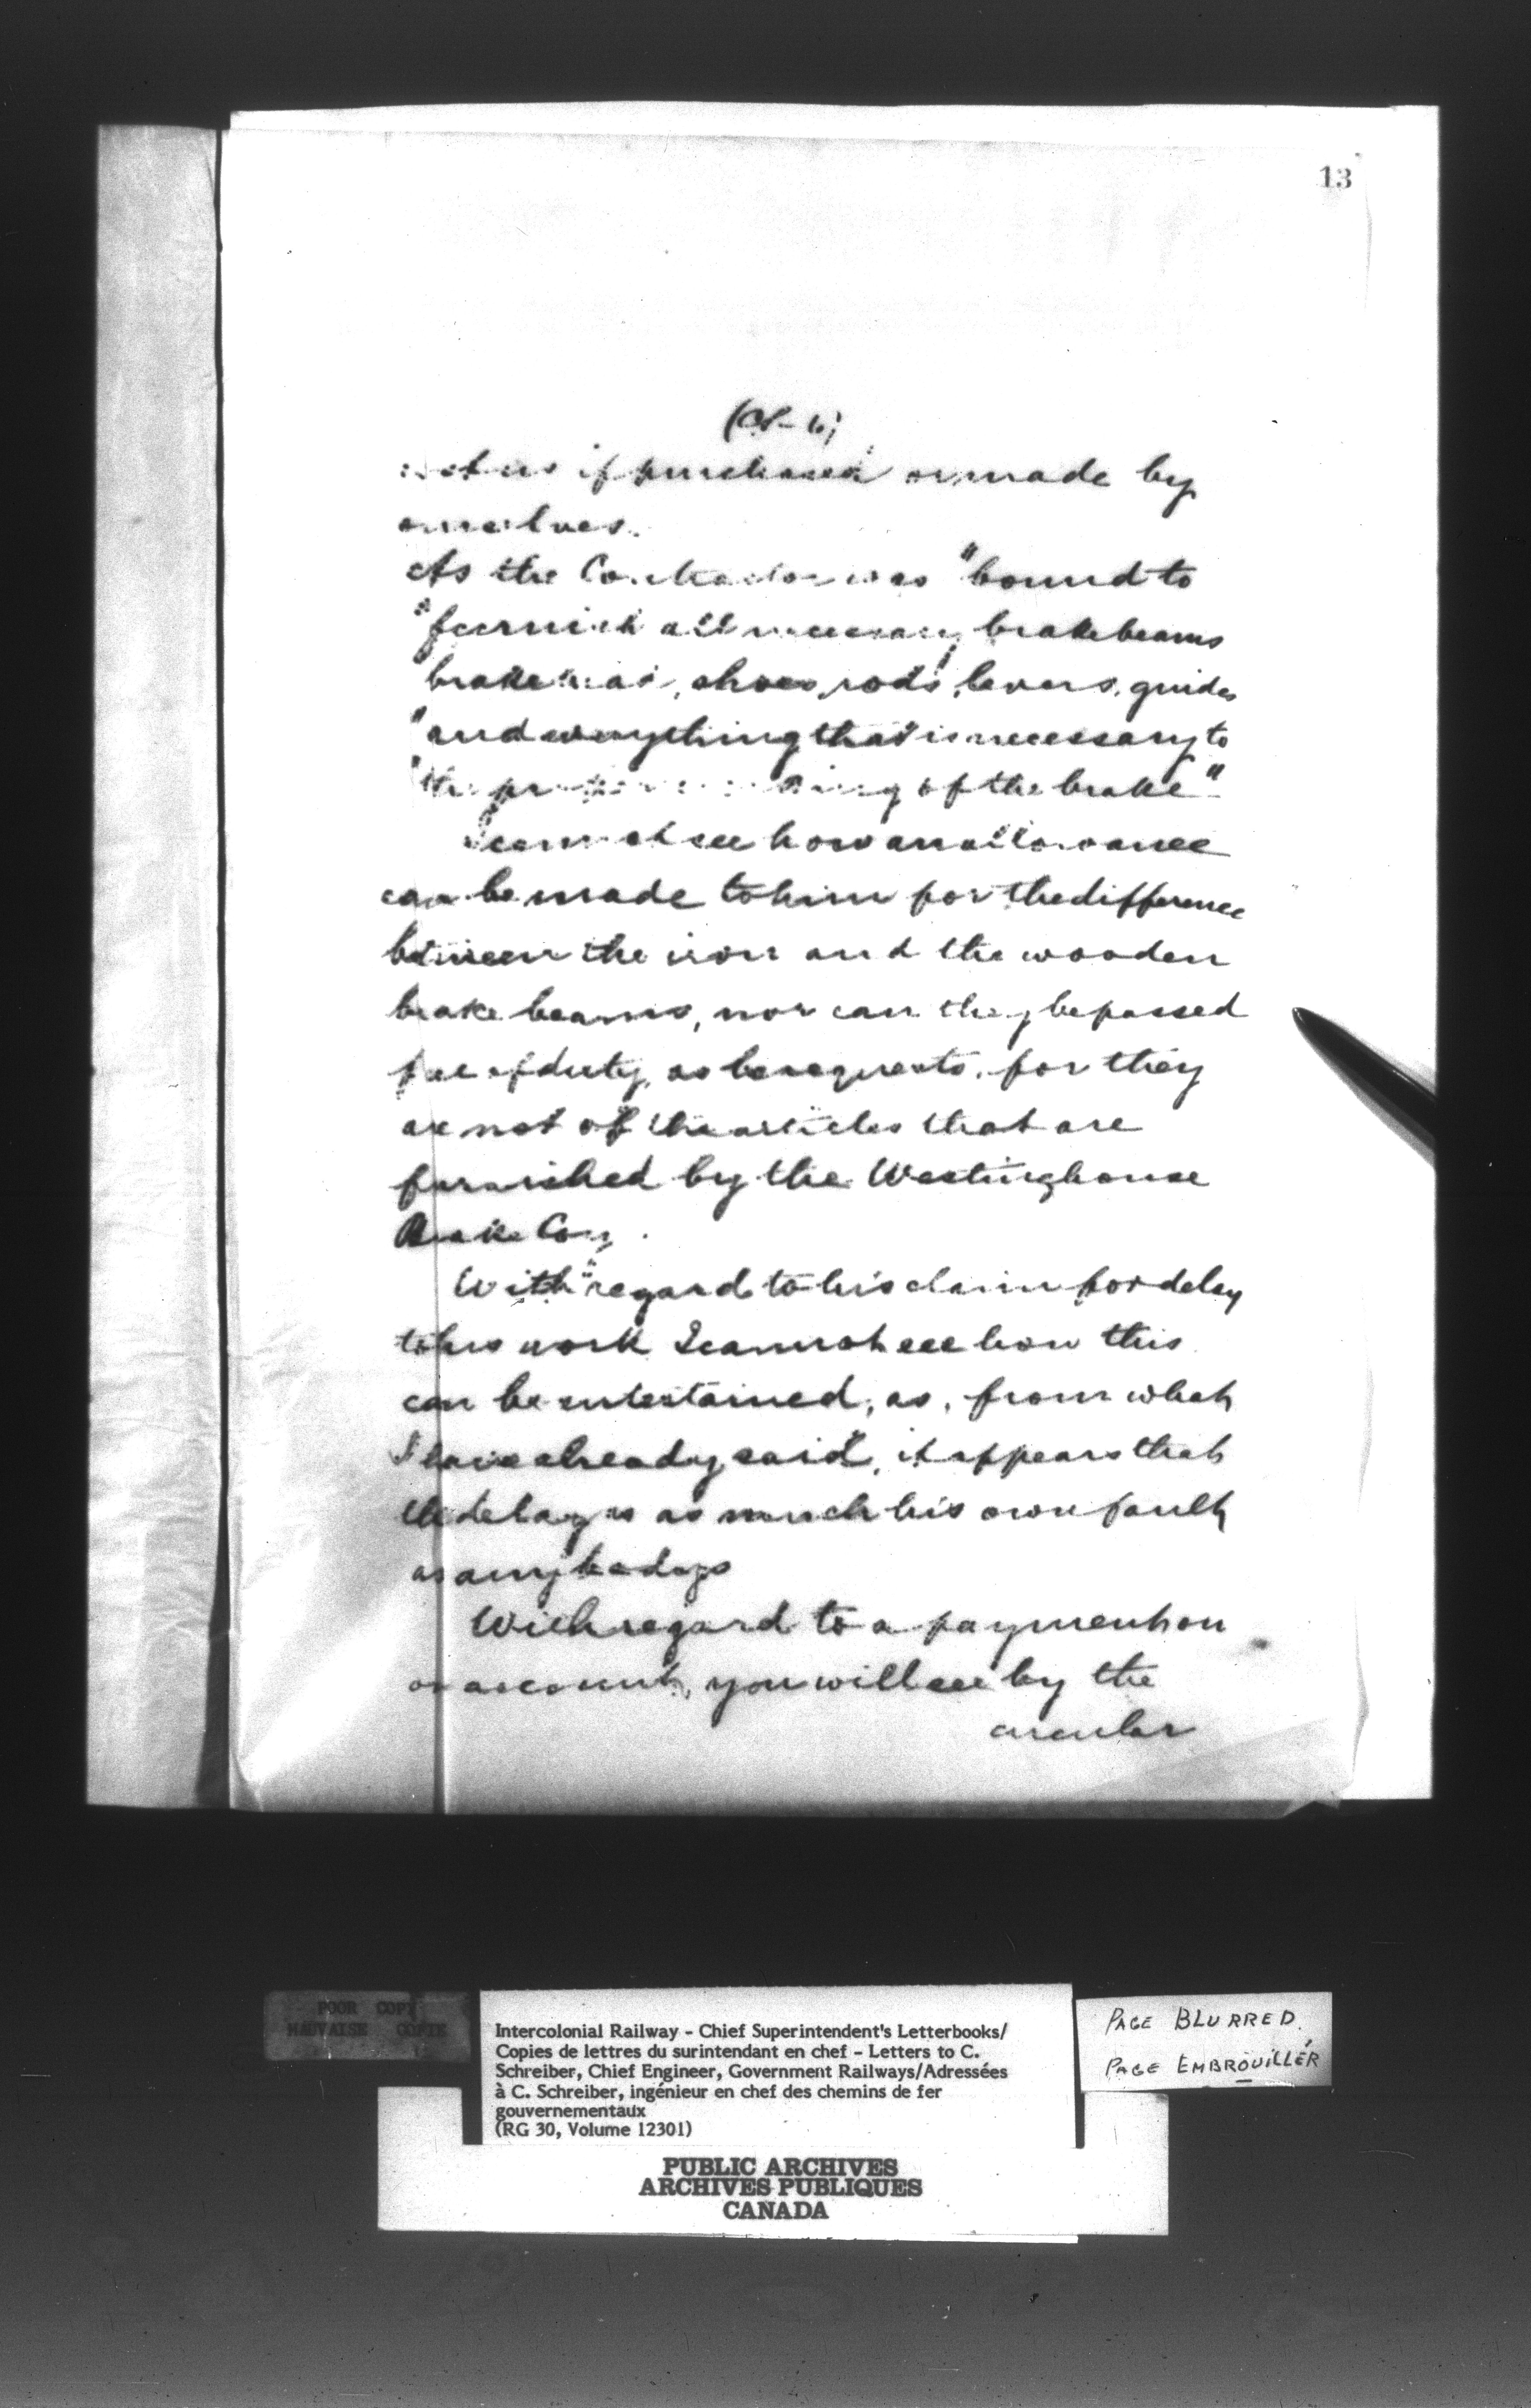 13
if purchased or made by
ourselves.
As the Contractor was "bound to
"furnish all necessary brakebeams
"brake heads, shoes, rods, levers, guides
"and everything that is necessary to
"the proper working of the brake"
I cannot see how an allowance
can be made to him for the difference
between the iron and the wooden
brake beams, nor can they be passed
free of duty, as he requests, for they
are not of the articles that are
furnished by the Westinghouse
Brake Coy.
With regard to his claim for delay
to his work I cannot see how this
can be entertained, as, from what
I have already said, it appears that
the delay is as much his own fault
as anybodys
With regard to a payment on
on account, you will see by the
circular
POOR COPY
MAUVAISE COPIE
Intercolonial Railway - Chief Superintendent's Letterbooks/
Copies de lettres du surintendant en chef - Letters to C.
Schreiber, Chief Engineer, Government Railways/Adressées
à C. Schreiber, ingénieur en chef des chemins de fer
gouvernementaux
(RG 30, Volume 12301)
PAGE BLURRED.
PAGE EMBROUILLÉR
PUBLIC ARCHIVES
ARCHIVES PUBLIQUES
CANADA